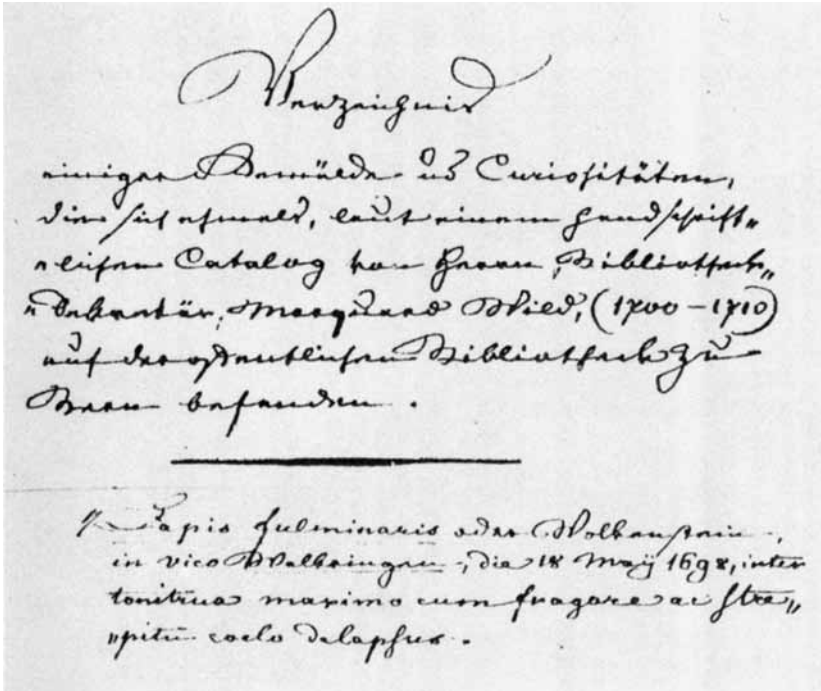 Verzeichnis
einiger Gemälde u͞s Curiositäten,
die sich ehmals, laut einem handschrift„
„lichen Catalog von Herrn Bibliotheck„
„Sekretär, Marquard Wild, (1700–1710)
auf der öffentlichen Bibliotheck zu
Bern befanden.
1/ Lapis fulminaris oder Wolkenstein,
in vico Walkringen, die 18 May 1698, inter
tonitrua maximo cum fragore ac stre„
„pitu coelo delapsus.